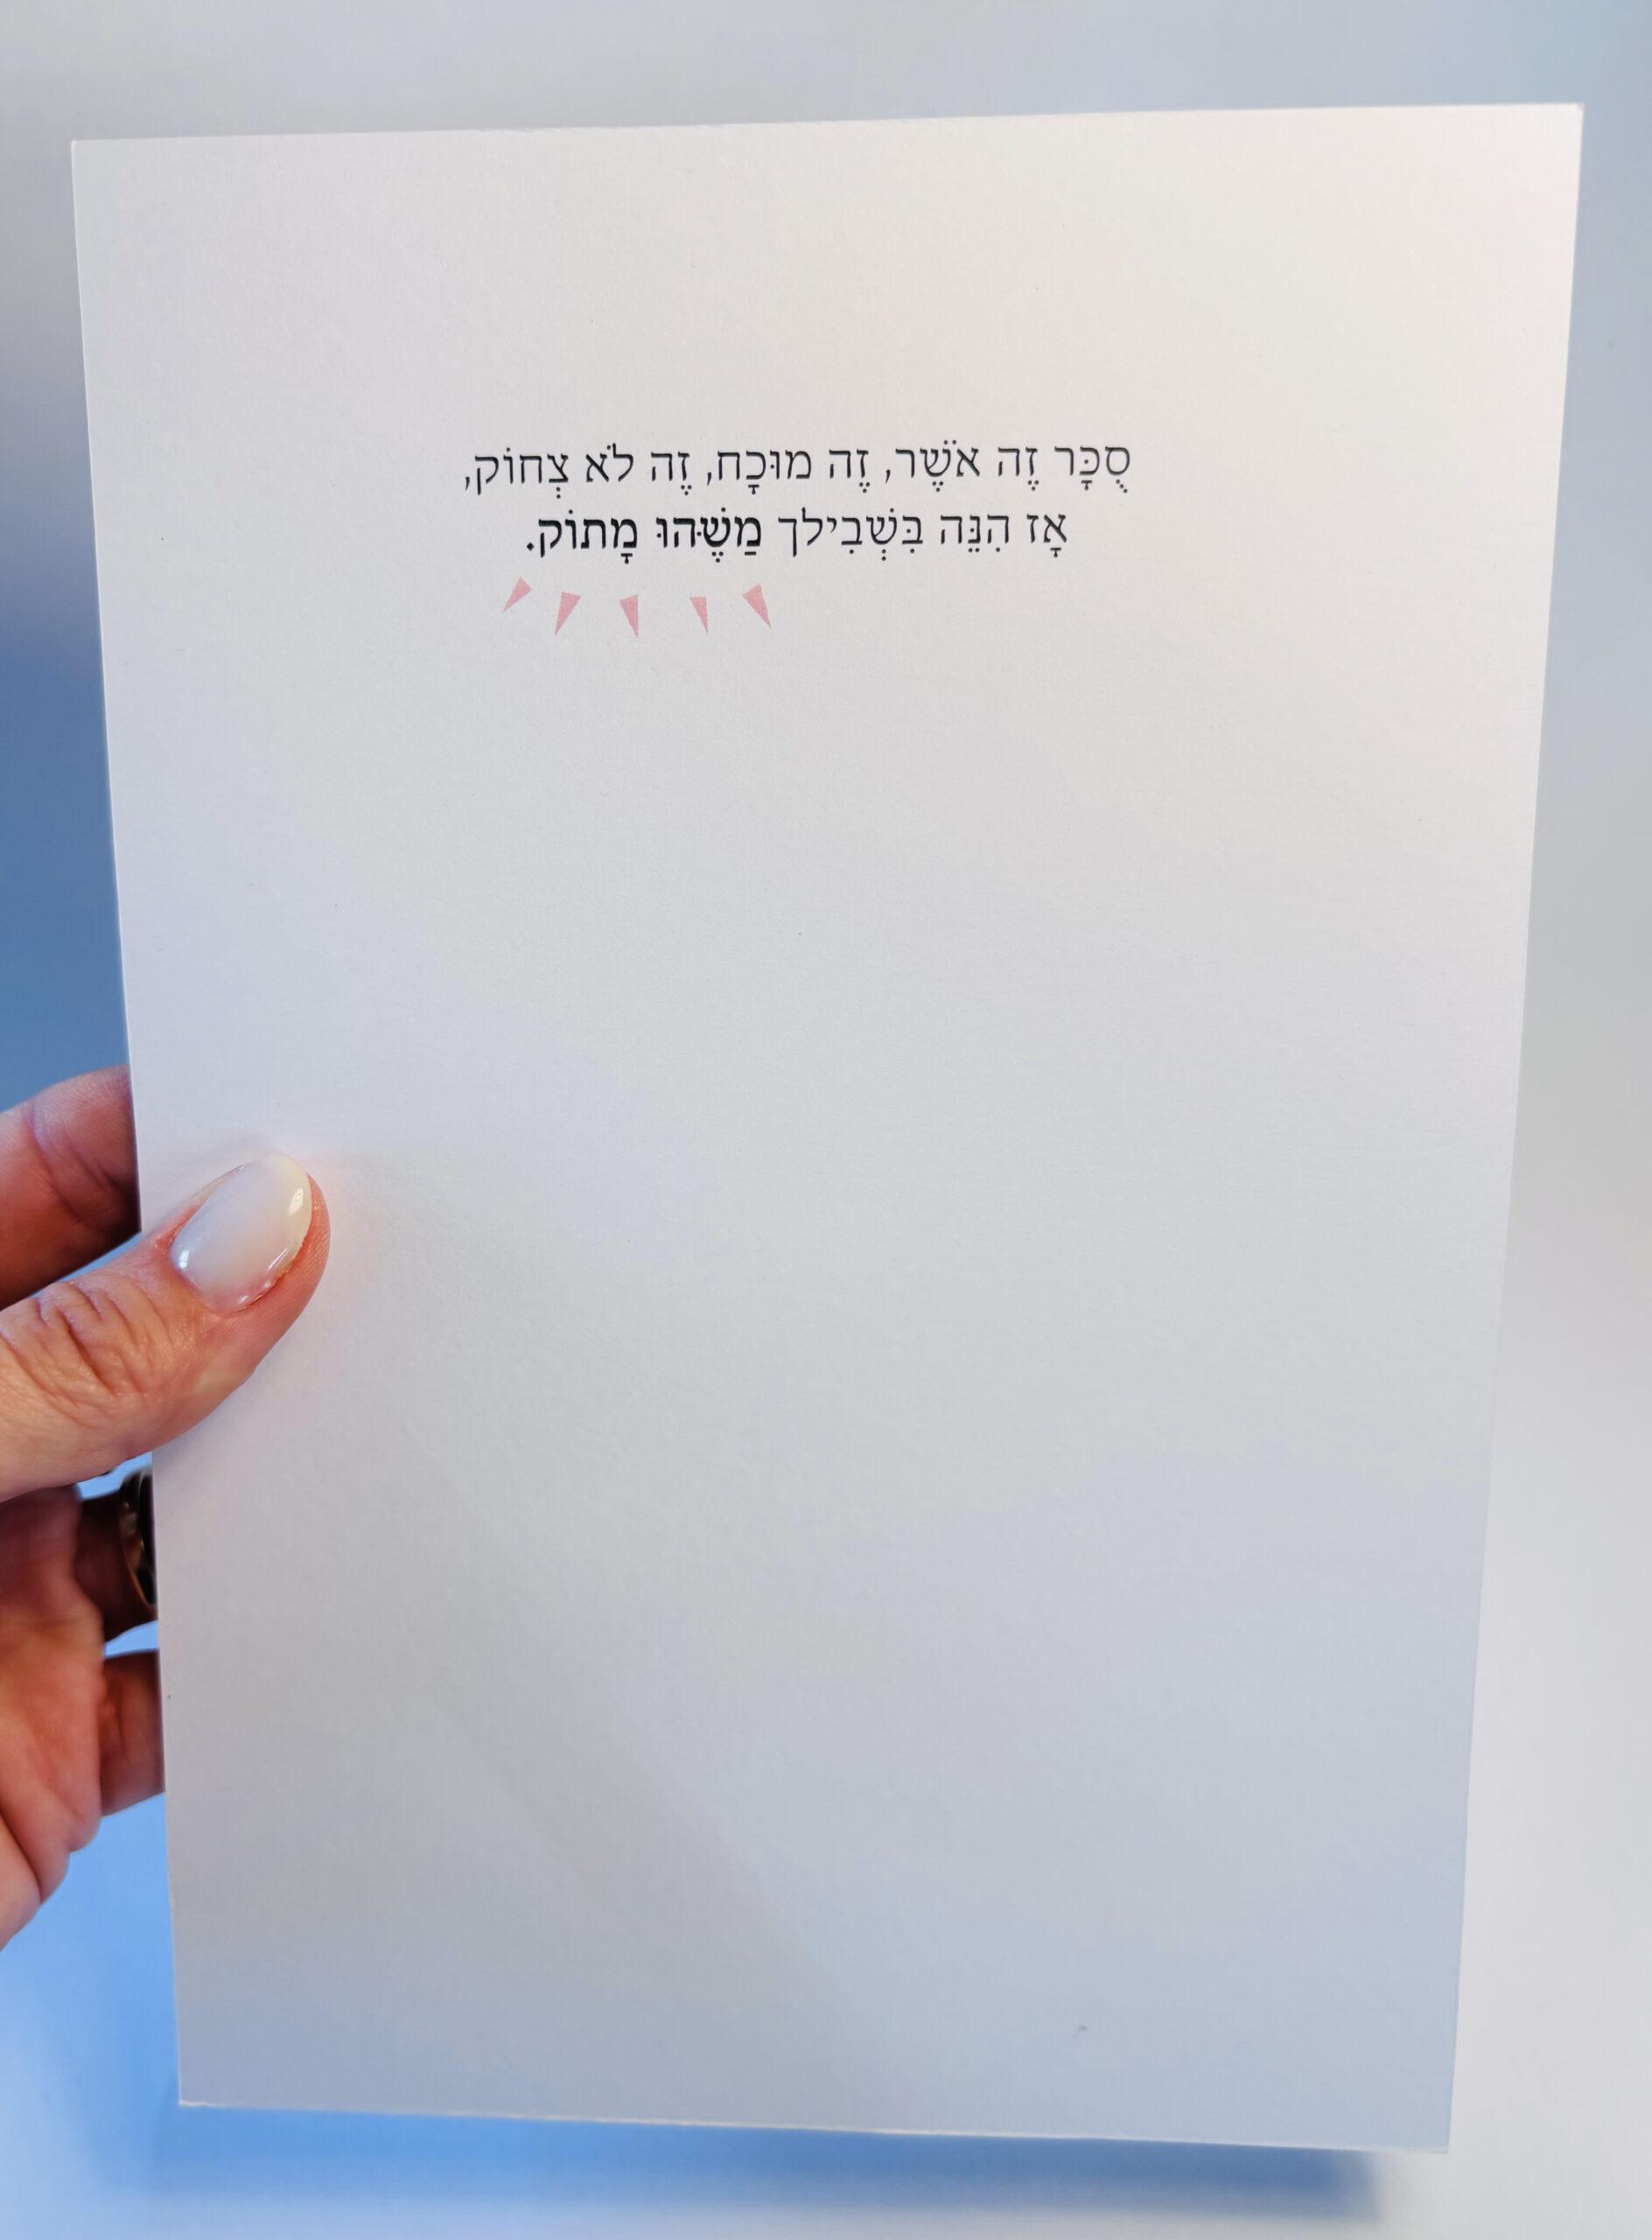 סֻכָּר זֶה אֹשֶׁר, זֶה מוּכָח, זֶה לֹא צְחוֹק,
אָז הִנֵּה בִּשְׁבִילך מַשֶּׁהוּ מָתוֹק.